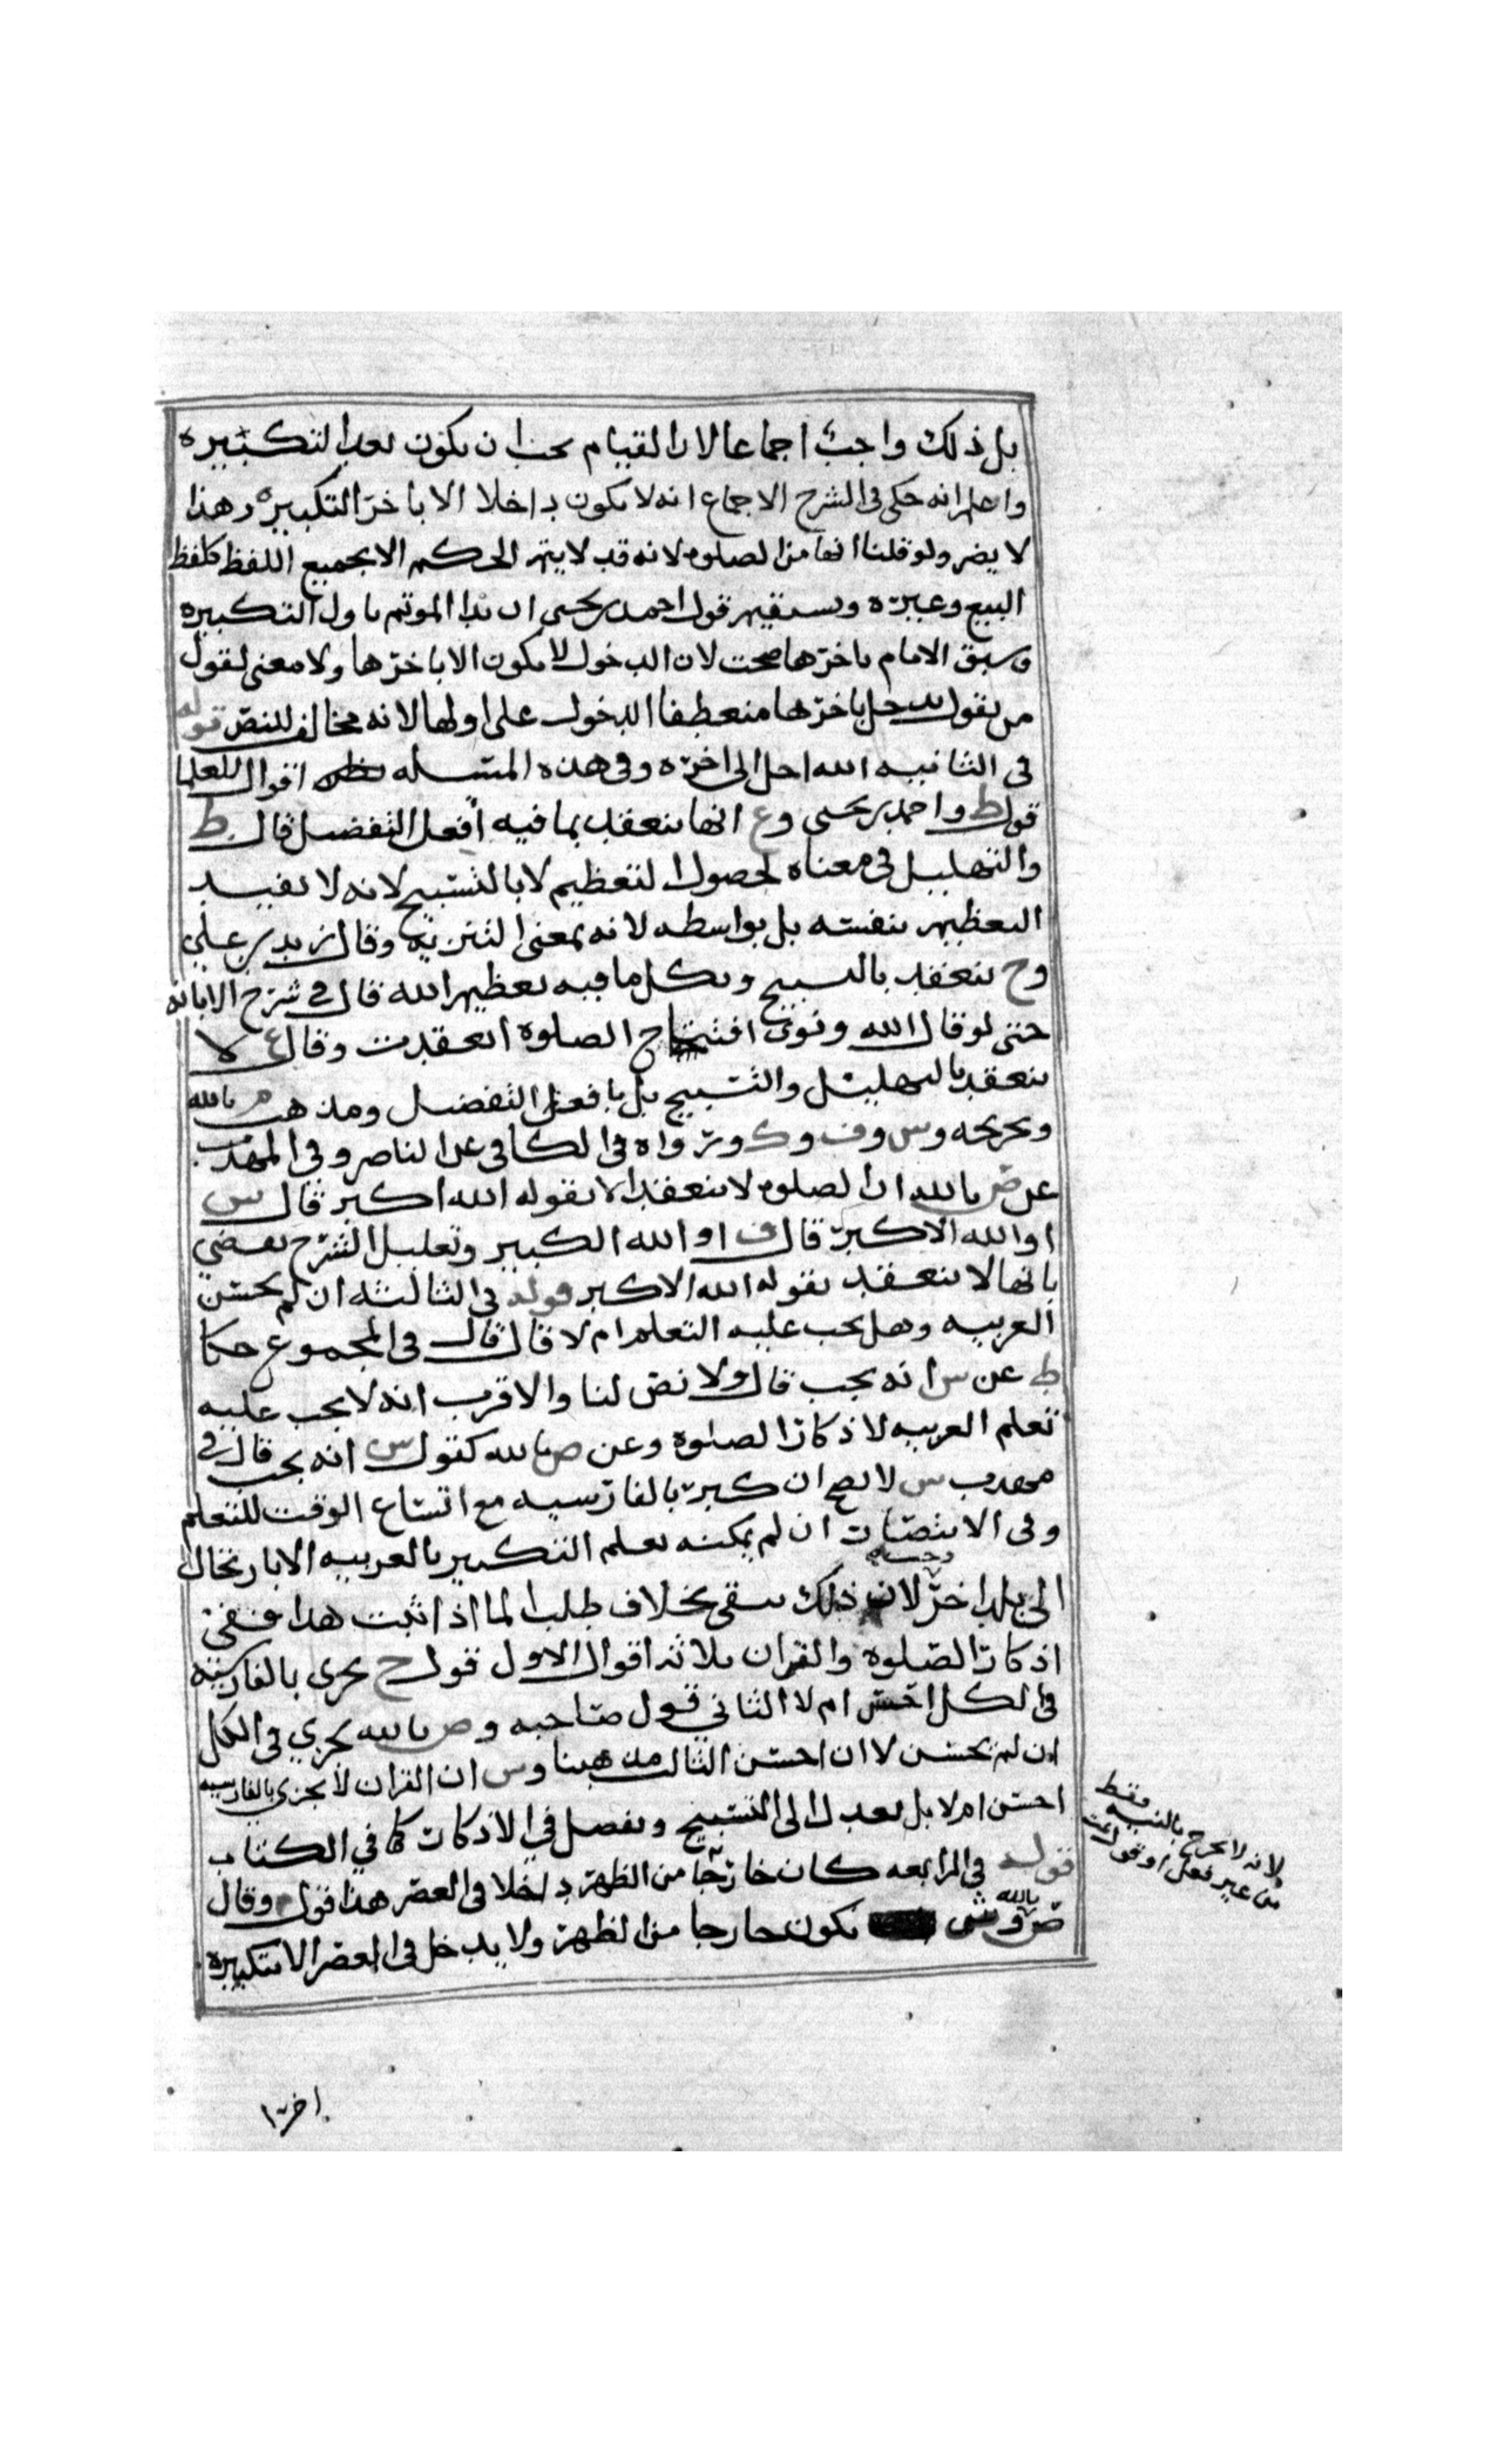 بل ذلك واجب اجماعا لان القيام يجب ان يكون بعد التكبيره
واعلم انه حكى في الشرح الاجماع انه لا يكون داخلا الا باخر التكبيره وهذا
لا يضر ولو قلنا انها من الصلوه لانه قد لا يتم الحكم الا بجميع اللفظ كلفظ
البيع وغيره ويستقيم قول احمد بن يحيى ان بدا الموتم باول التكبيره
وسبق الامام باخرها صحت لان الدخول لا يكون الا باخرها ولا معنى لقول
من يقول يدخل باخرها منعطفا الدخول على اولها لانه مخالف للنص قوله
في الثانيه الله اجل الى اخره وفي هذه المسله اقوال للعلما
قول ط واحمد بن يحيى وع انها تنعقد بما فيه أفعل التفضيل قال ط
والتهليل في معناه لحصول التعظيم لا بالتسبيح لانه لا يفيد
التعظيم بنفسه بل بواسطه لانه بمعنى التنزيه وقال زيد بن علي
وح تنعقد بالتسبيح وبكل ما فيه تعظيم الله قال في شرح الابانه
حتى لو قال الله ونوى افتتاح الصلوة انعقدت وقال ع لا
تنعقد بالتهليل والتسبيح بل بافعل التفضيل ومذهب م بالله
وتخريجه وس وف وك ورواه في الكافي عن الناصر وفي المهذب
عن ص بالله ان الصلوه لا تنعقد الا بقوله الله اكبر قال س
او الله الاكبر قال ف او الله الكبير وتعليل الشرح يقضي
بانها لا تنعقد بقوله الله الاكبر قوله في الثالثه ان لم يحسن
العربيه وهل يجب عليه التعلم ام لا قال قال في المجموع حكا
ط عن س انه يجب قال ولا نص لنا والاقرب انه لا يجب عليه
تعلم العربيه لاذكار الصلوة وعن ص بالله كقول س انه يجب قال في
مهذب س لا يصح ان كبر بالفارسيه مع اتساع الوقت للتعلم
وفي الانتصار ان لم يمكنه تعلم التكبير بالعربيه الا بارتحال
الى بلد اخر لان ذلك يبقى بخلاف طلب الما اذا ثبت هذا ففي
اذكار الصلوه والقران ثلاثه اقوال الاول قول ح يجزي بالفارسيه
في الكل احسن ام لا الثاني قول صاحبه وص بالله يجزي في الكل
ان لم يحسن لا ان احسن الثالث مذهبنا وس ان القران لا يجزي بالفارسيه
احسن ام لا بل يعدل الى التسبيح ويفصل في الاذكار كما في الكتاب
قوله في الرابعه كان خارجا من الظهر داخلا في العصر هذا قول م وقال
ص بالله وش يكون خارجا من الظهر ولا يدخل في العصر الا بتكبيره
لانه لا يخرج بالنيه فقط
من غير فعل او قول
اخرى